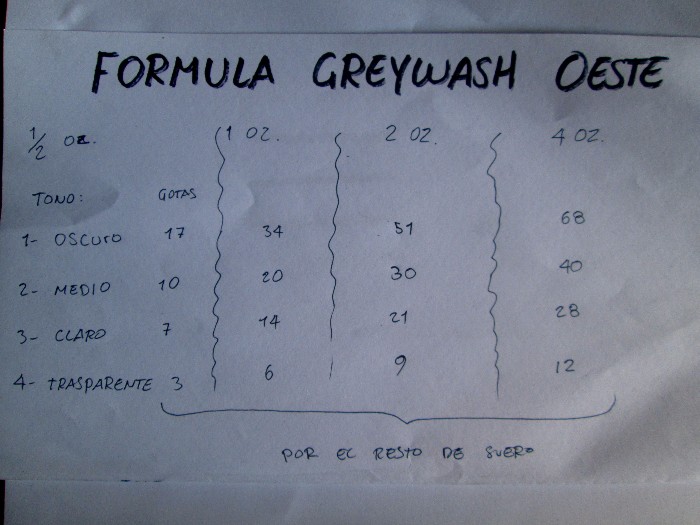 FORMULA GREYWASH OESTE
1/2 OZ. 1 OZ. 2 OZ. 4 OZ.
TONO: GOTAS
1- OSCURO 17 34 51 68
2- MEDIO 10 20 30 40
3- CLARO 7 14 21 28
4- TRASPARENTE 3 6 9 12
POR EL RESTO DE SUERO